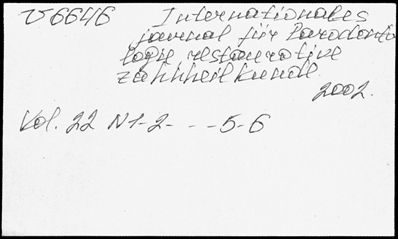 V6646 Internationales
journal für Parodonto
logie restaurative
zahnheilkunde
2002.
Vol. 22 N1-2- - - 5-6